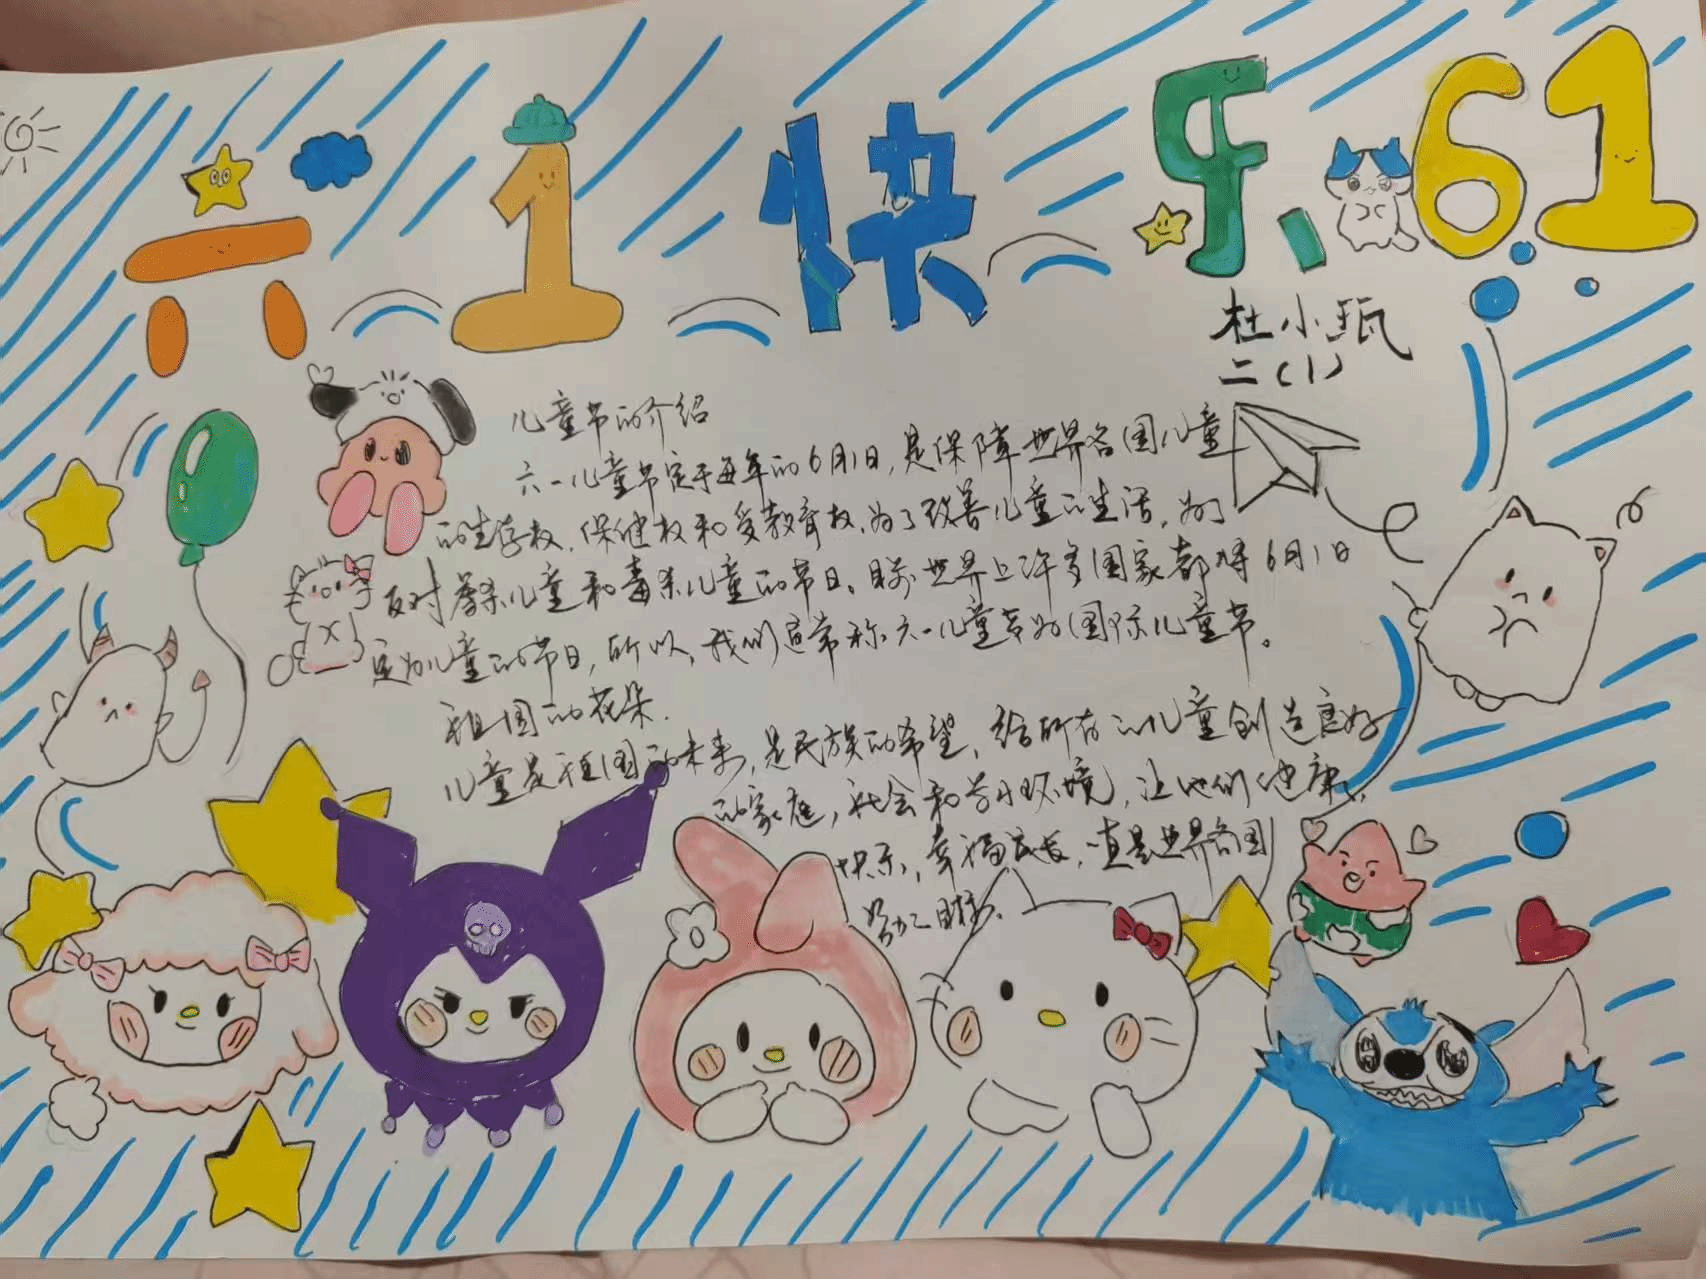 六1快乐 61
杜小瓶
二(1)
儿童节的介绍
六一儿童节定于每年的6月1日,是保障世界各国儿童
的生存权、保健权和受教育权,为了改善儿童的生活,为了
反对虐杀儿童和毒杀儿童的节日。目前世界上许多国家都将6月1日
定为儿童的节日,所以,我们通常称六一儿童节为国际儿童节。
祖国的花朵.
儿童是祖国的未来,是民族的希望,给所有的儿童创造良好
的家庭,社会和学习环境,让他们健康、
快乐,幸福成长,一直是世界各国
努力目标.